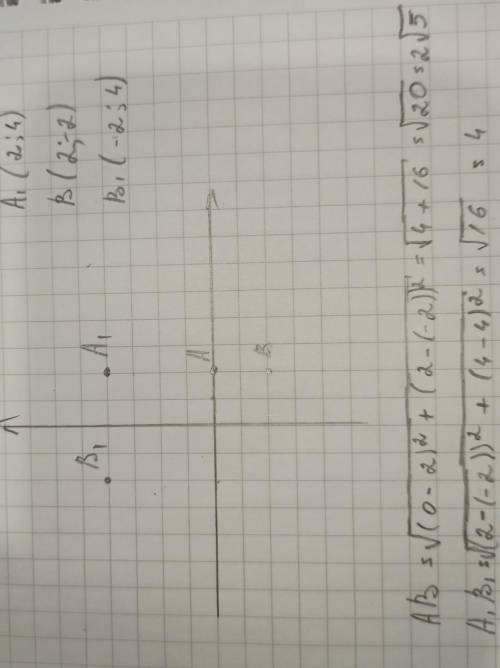 A₁ (2; 4)
B (2; -2)
B₁ (-2; 4)
B₁
A₁
A
B
AB = √(0-2)² + (2-(-2))² = √4+16 = √20 = 2√5
A₁B₁ = √(2-(-2))² + (4-4)² = √16 = 4